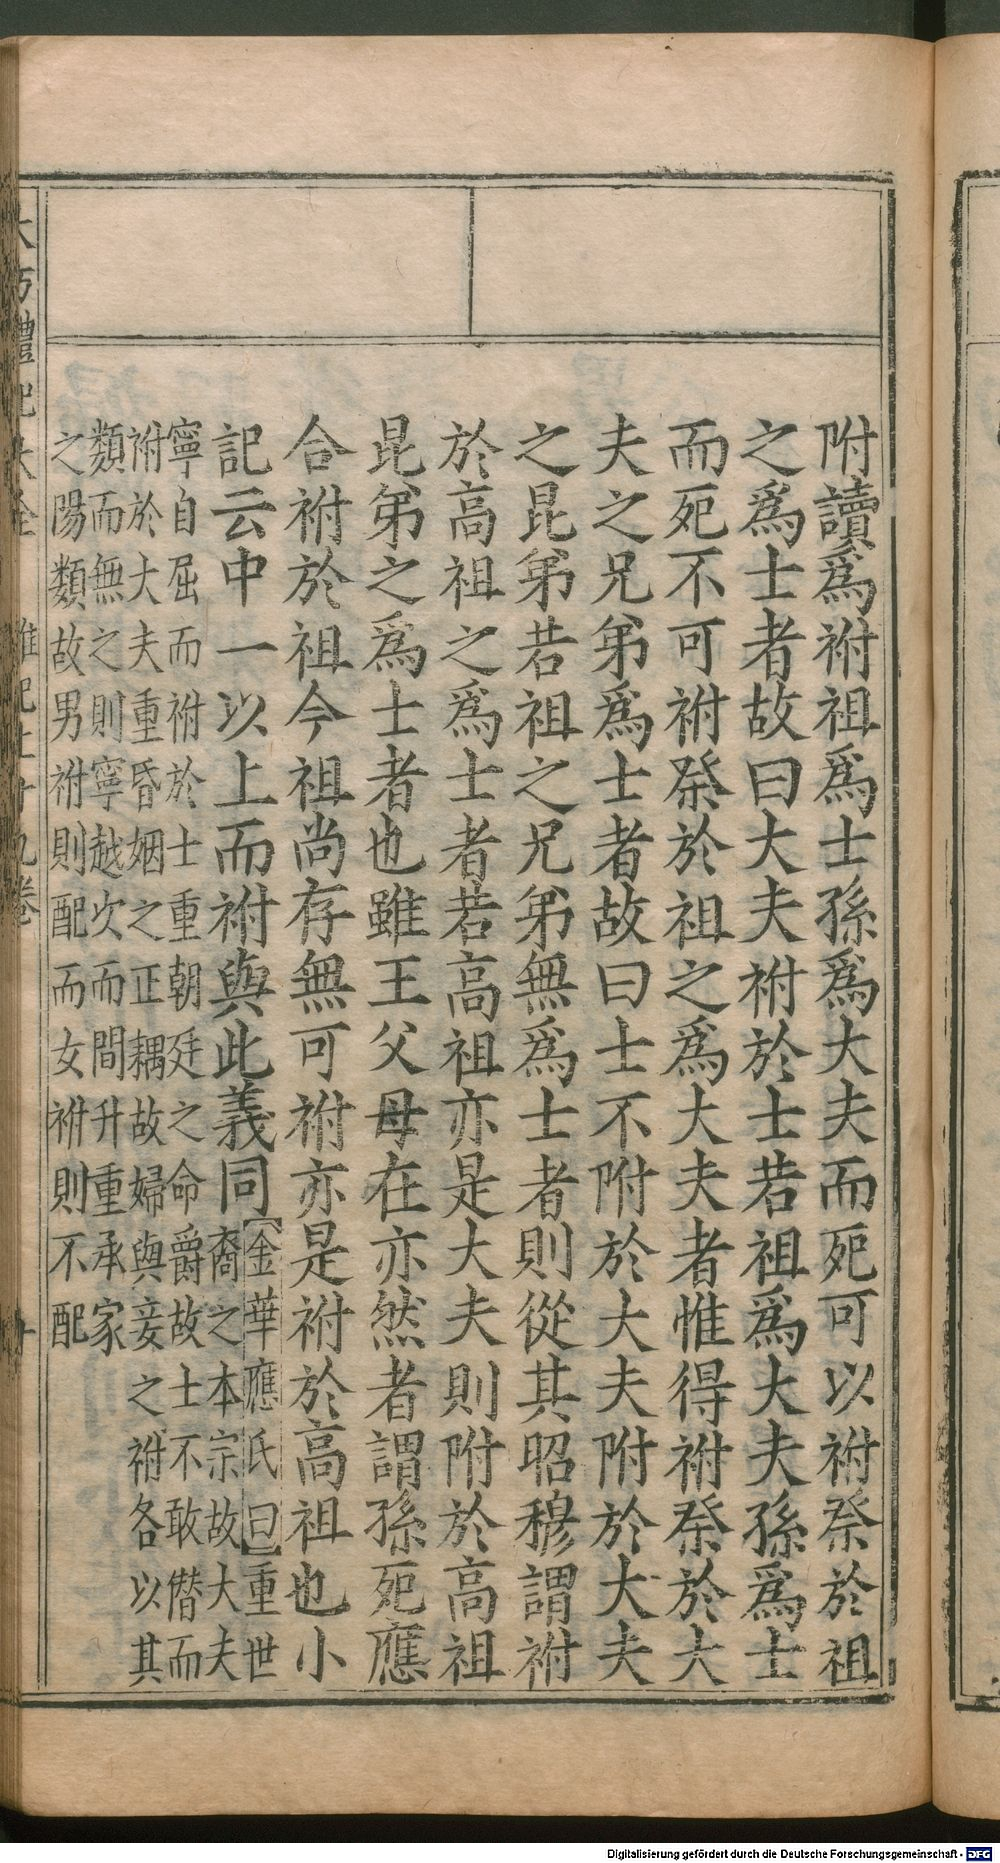 附讀爲祔祖爲士孫爲大夫而死可以祔祭於祖
之爲士者故曰大夫祔於士若祖爲大夫孫爲士
而死不可祔祭於祖之爲大夫者惟得祔祭於大
夫之兄弟爲士者故曰士不附於大夫附於大夫
之昆弟若祖之兄弟無爲士者則從其昭穆謂祔
於高祖之爲士者若高祖亦是大夫則附於高祖
昆弟之爲士者也雖王父母在亦然者謂孫死應
合祔於祖今祖尚存無可祔亦是祔於高祖也小
記云中一以上而祔與此義同
金華應氏曰重世
裔之本宗故大夫
寧自屈而祔於士重朝廷之命爵故士不敢僭而
祔於大夫重昏姻之正耦故婦與妾之祔各以其
類而無之則寧越次而間升重承家
之陽類故男祔則配而女祔則不配
禮記
卷
Digitalisierung gefördert durch die Deutsche Forschungsgemeinschaft - DFG